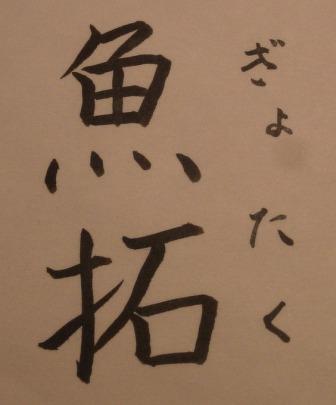 魚拓
ぎょたく